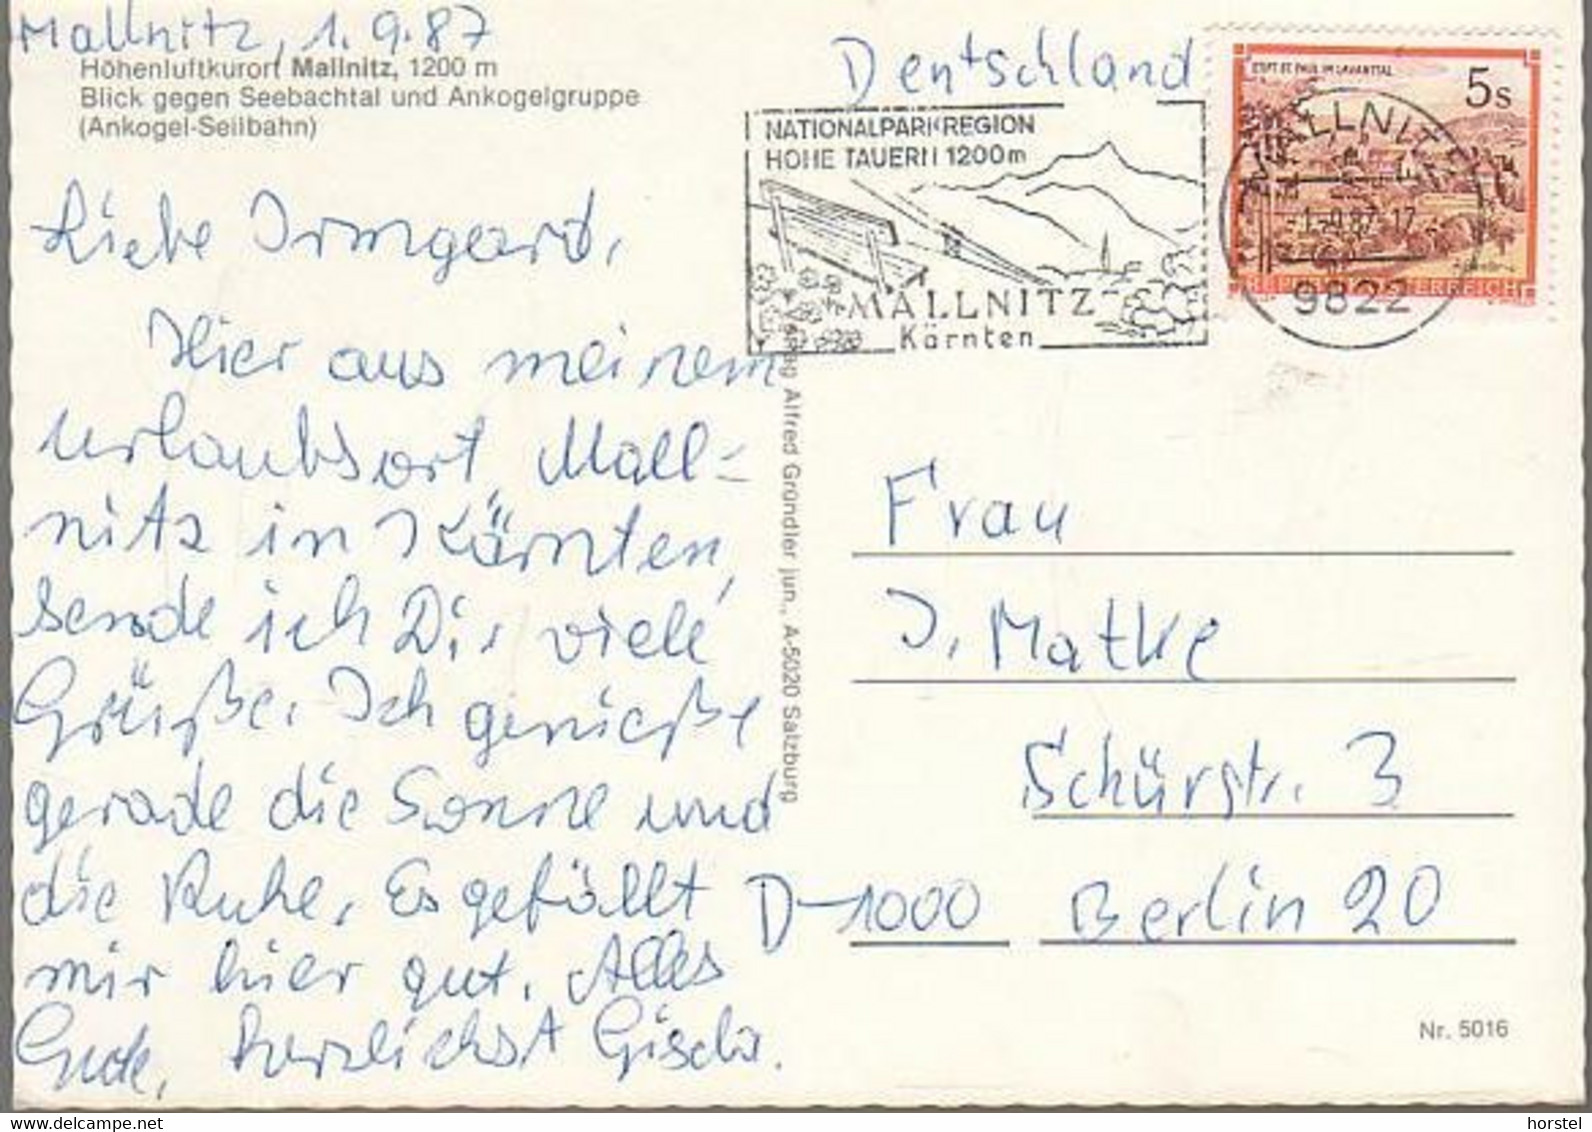 Mallnitz, 1.9.87
Höhenluftkurort Mallnitz, 1200 m
Blick gegen Seebachtal und Ankogelgruppe
(Ankogel-Seilbahn)
Liebe Irmgard,
Hier aus meinem
Urlaubsort Mall=
nitz in Kärnten,
sende ich Dir viele
Grüße. Ich genieße
gerade die Sonne und
die Ruhe. Es gefällt
mir hier gut. Alles
Gute, herzlichst Gisela.
Verlag Alfred Gründler jun., A-5020 Salzburg
Deutschland
NATIONALPARKREGION
HOHE TAUERN 1200m
MALLNITZ
Kärnten
STIFT ST. PAUL IM LAVANTTAL
5s
REPUBLIK ÖSTERREICH
MALLNITZ
-1.-9.87-17
9822
Frau
I. Matke
Schürstr. 3
D-1000 Berlin 20
Nr. 5016
horstel